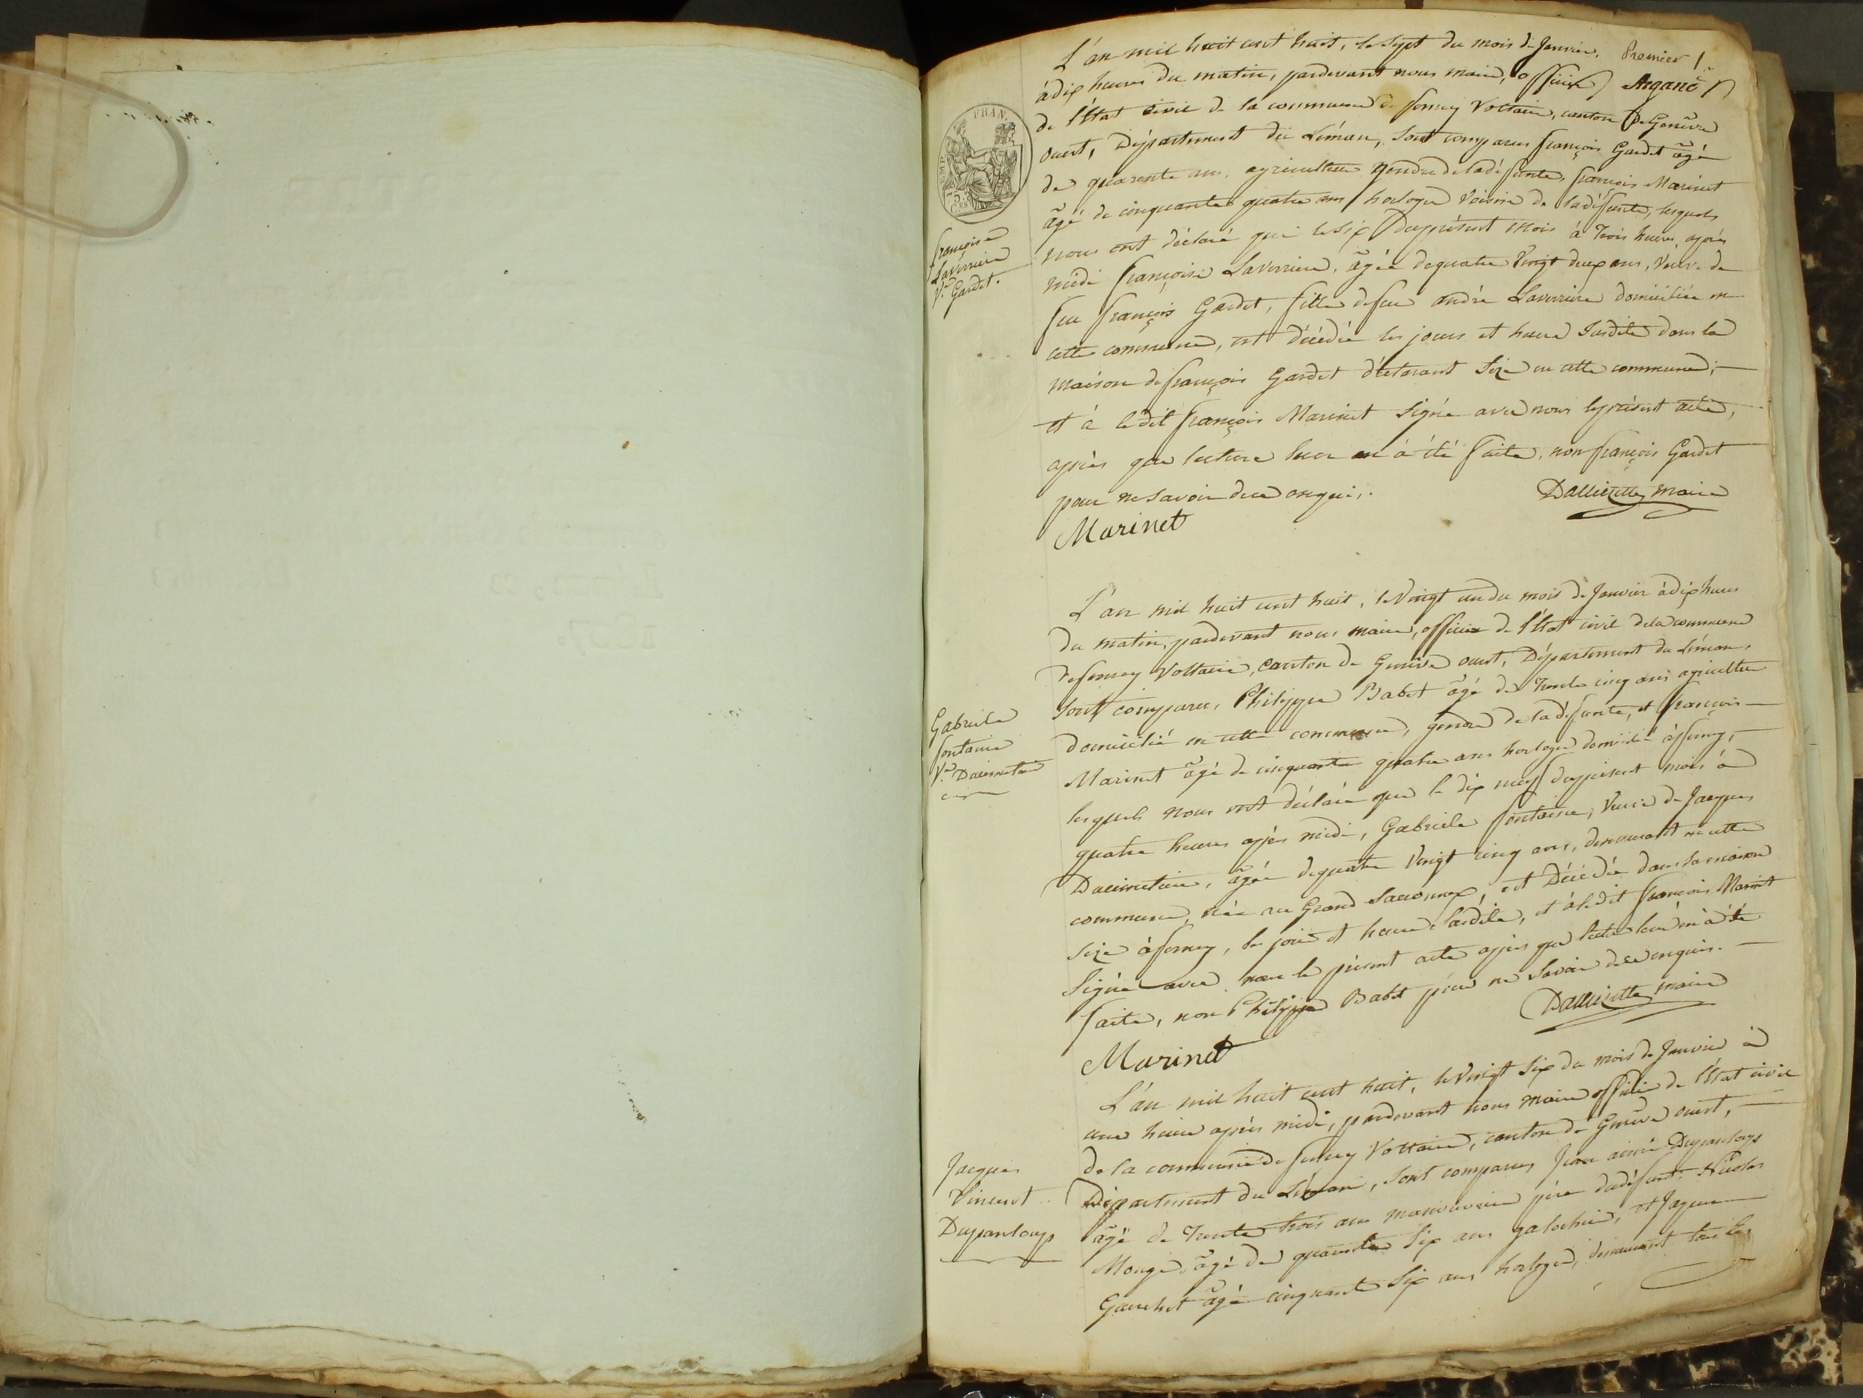 Premier 1
L'an mil huit cent huit, le sept du mois de Janvier,
à dix heures du matin, pardevant nous maire, officier
de l'Etat civil de la commune de ferney Voltaire, canton de Genève
ouest, Département du Léman, sont comparus françois Gardet âgé
de quarante ans, agriculteur gendre de la défunte, françois Marinet
âgé de cinquante quatre ans horloger voisin de la défunte, lesquels
nous ont déclaré que le six du présent mois à trois heures après
midi françoise Laverriere, âgée de quatre Vingt deux ans, Veuve de
feu françois Gardet, fille de feu andré Laverriere domiciliée en
cette commune, est décédée les jours et heure susdite dans la
maison de françois Gardet déclarant size en cette commune;
et à ledit françois Marinet signé avec nous le présent acte,
après que lecture leur en à été faite, non françois Gardet
pour ne savoir de ce enquis.
Dallizette maire
Marinet
françoise
Laverriere
Ve. Gardet.
L'an mil huit cent huit, le Vingt un du mois de Janvier à dix heures
du matin, pardevant nous maire, officier de l'Etat civil de la commune
de ferney Voltaire, canton de Genève ouest, Département du Léman,
sont comparus, Philippe Babet âgé de trente cinq ans agriculteur
domicilié en cette commune, gendre de la défunte, et françois
Marinet âgé de cinquante quatre ans horloger domicilié à ferney,
lesquels nous ont déclaré que le dix neuf du présent mois à
quatre heures après midi, Gabriele fontaine, Veuve de Jacques
âgée de quatre Vingt cinq ans, demeurant en cette
commune, née au Grand Saconnex, est Décédée dans la maison
size à ferney, les jour et heure susdite, et à ledit françois Marinet
Signé avec nous le présent acte après que lecture leur en à été
faite, non Philippe Babet pour ne savoir de ce enquis.
Dallizette maire
Marinet
Gabriele
fontaine
Ve.
L'an mil huit cent huit, le Vingt six du mois de Janvier à
une heure après midi, pardevant nous maire officier de l'Etat civil
de la commune de ferney Voltaire, canton de Genève ouest,
Département du Léman, sont comparus Jean aimé Dupanloup
âgé de trente trois ans manœuvre père du défunt, Nicolas
Monge, âgé de quarante six ans galochier, et Jaques
Gauchet âgé cinquante six ans horloger, demeurant tous les
Jacques
Vincent
Dupanloup